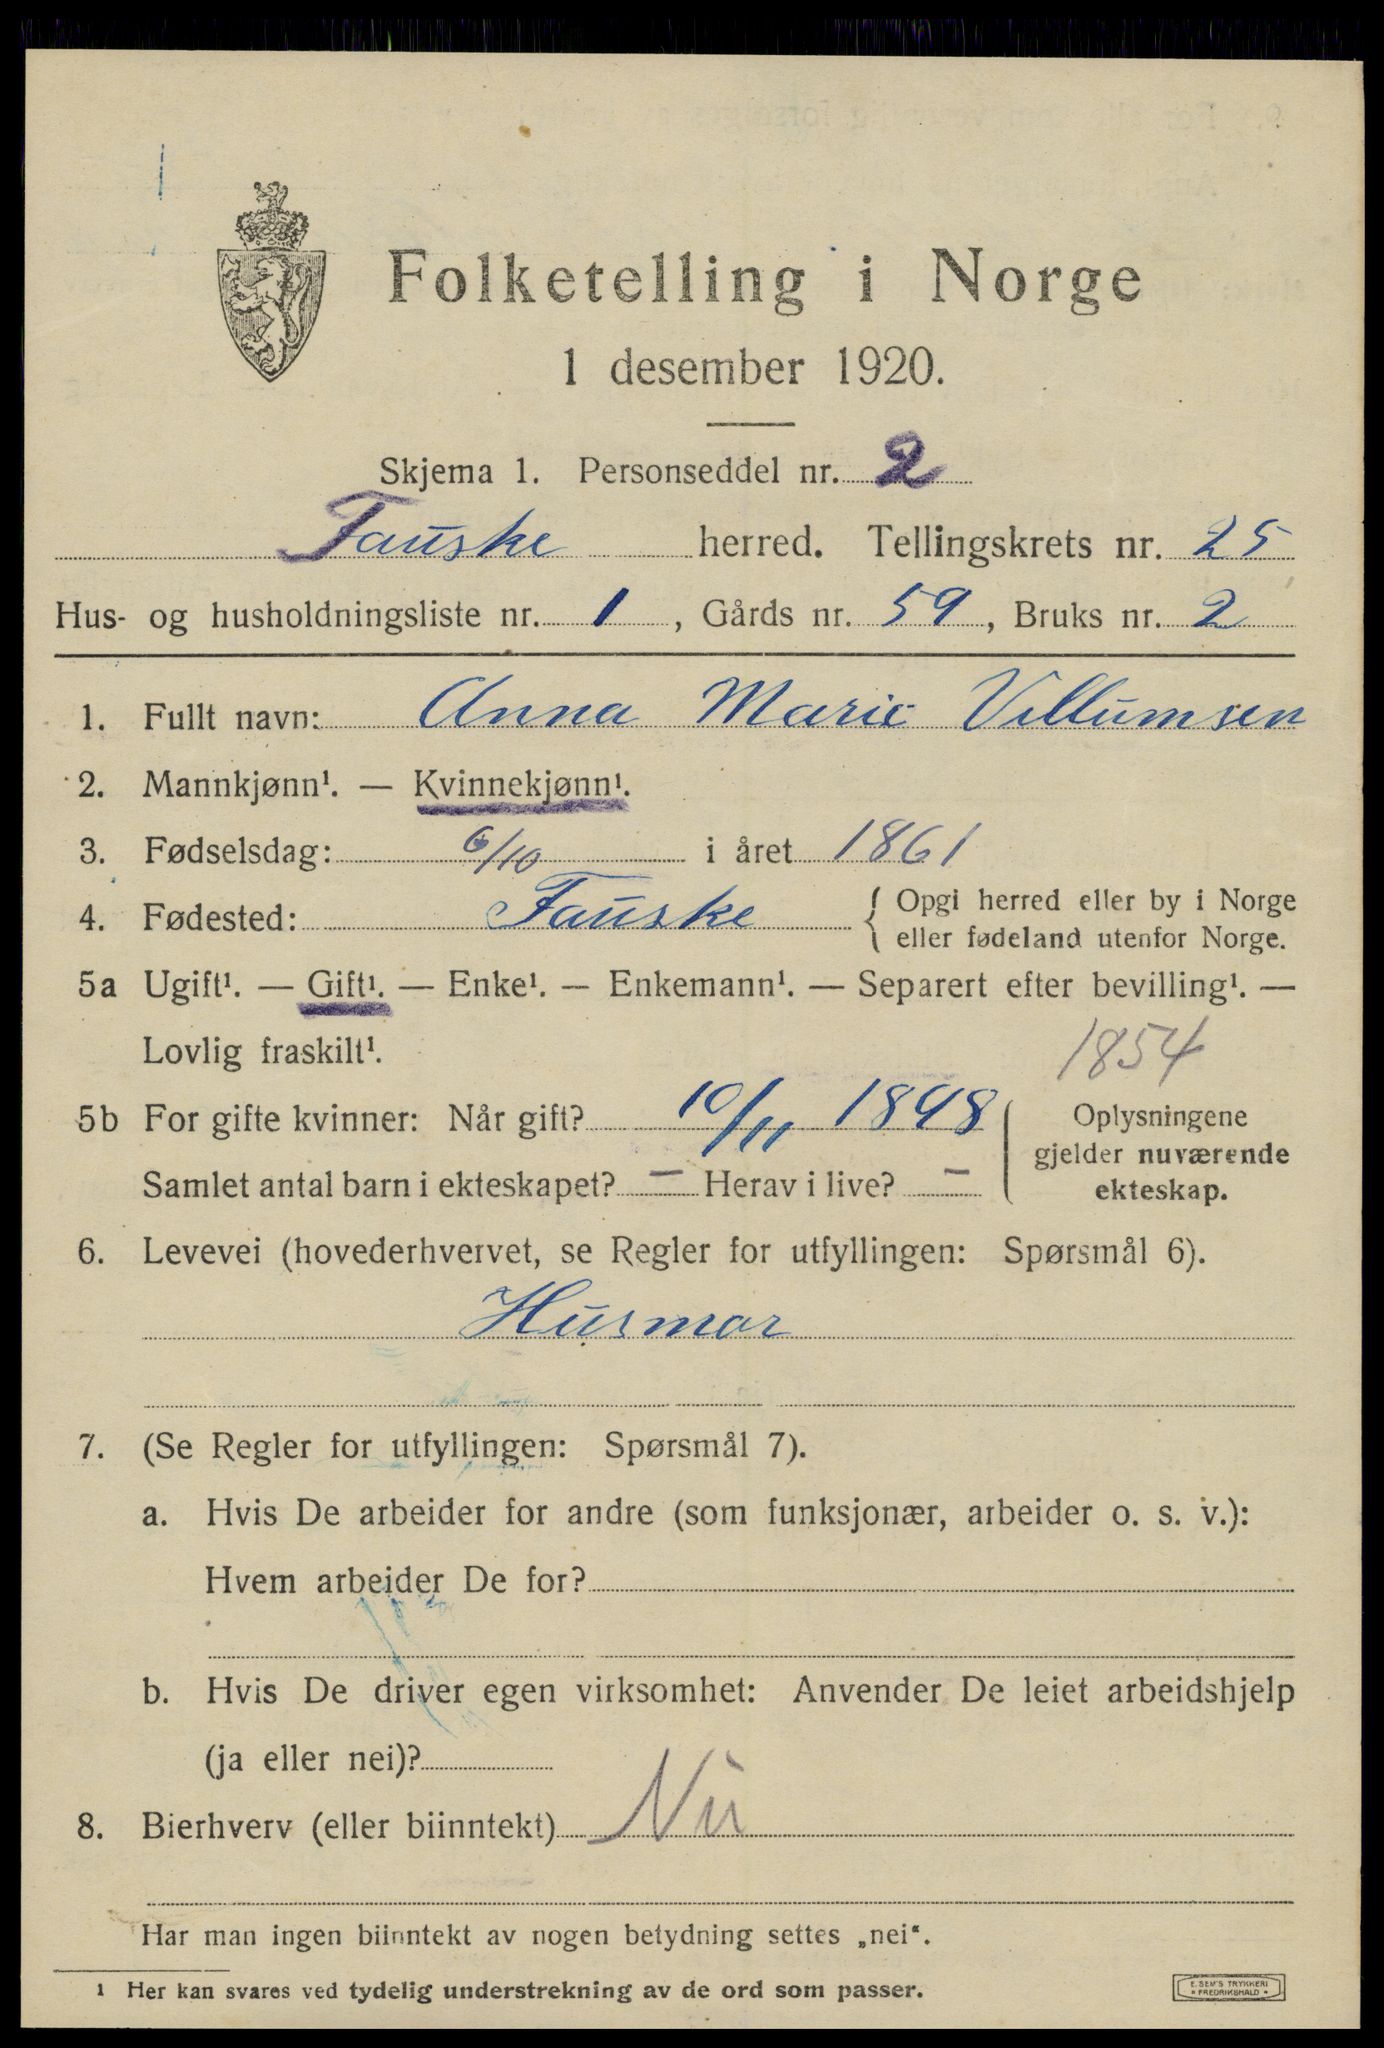 Folketelling i Norge
1 desember 1920.
Skjema 1. Personseddel nr. 2
Fauske herred. Tellingskrets nr. 25
Hus- og husholdningsliste nr. 1, Gårds nr. 59, Bruks nr. 2
1. Fullt navn: Anna Marie Villumsen
2. Mannkjønn¹. — Kvinnekjønn¹.
3. Fødselsdag: 6/10 i året 1861
4. Fødested: Fauske { Opgi herred eller by i Norge
eller fødeland utenfor Norge.
5a Ugift¹. — Gift¹. — Enke¹. — Enkemann¹. — Separert efter bevilling¹. —
Lovlig fraskilt¹.
1854
5b For gifte kvinner: Når gift? 10/11 1898
Samlet antal barn i ekteskapet? — Herav i live? —
Oplysningene
gjelder nuværende
ekteskap.
6. Levevei (hovederhvervet, se Regler for utfyllingen: Spørsmål 6).
Husmor
7. (Se Regler for utfyllingen: Spørsmål 7).
a. Hvis De arbeider for andre (som funksjonær, arbeider o. s. v.):
Hvem arbeider De for?
b. Hvis De driver egen virksomhet: Anvender De leiet arbeidshjelp
(ja eller nei)?
8. Bierhverv (eller biinntekt) Nei
Har man ingen biinntekt av nogen betydning settes „nei“.
1 Her kan svares ved tydelig understrekning av de ord som passer.
E. SEM'S TRYKKERI
* FREDRIKSHALD *